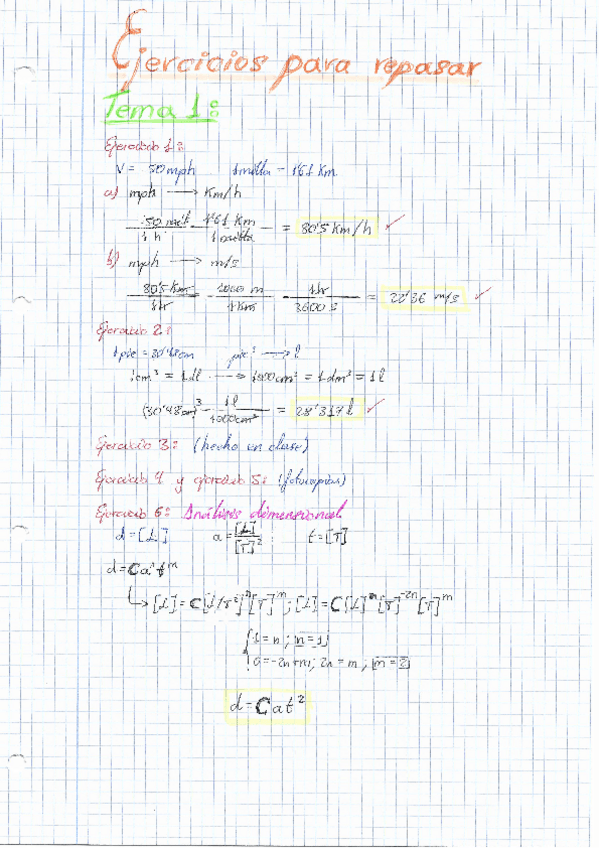 Ejercicios para repasar
Tema 1:
Ejercicio 1:
V = 50 mph 1 milla = 1'61 Km
a) mph → Km/h
50 mill 1'61 Km / 1 h 1 milla = 80'5 Km/h ✓
b) mph → m/s
80'5 Km / 1 hr 1000 m / 1 Km 1 hr / 3600 s = 22'36 m/s ✓
Ejercicio 2:
1 pie = 30'48 cm pie³ → l
1000 cm³ = 1 dm³ = 1 l
(30'48 cm)³ · 1 l / 1000 cm³ = 28'317 l ✓
Ejercicio 3: (hecho en clase)
Ejercicio 4 y ejercicio 5: (fotocopias)
Ejercicio 6: Análisis dimensional
d = [L] a = [L] / [T]² t = [T]
d = C aⁿ tᵐ
↳ [L] = C [L/T²]ⁿ [T]ᵐ ; [L] = C [L]ⁿ [T]⁻²ⁿ [T]ᵐ
{ 1 = n ; n = 1
0 = -2n + m ; 2n = m ; m = 2
d = C a t²